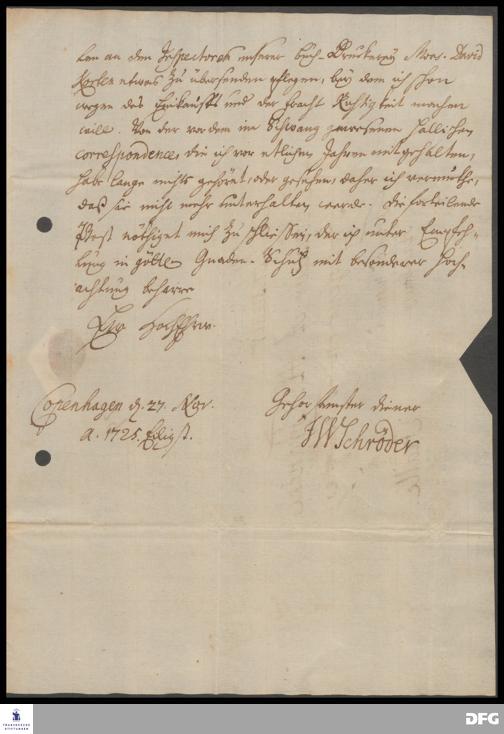 len an den Inspectorem unserer Buch-Druckerey Mons. David
etwas zu übersenden pflegen, bey dem ich schon
wegen des Einkauffs und der fracht Richtigkeit machen
will. Von der vordem im Schwang gewesenen Hallischen
correspondence, die ich vor etlichen Jahren mitgehalten,
habe lange nichts gehöret, oder gesehen, daher ich vermuthe,
daß sie nicht mehr unterhalten werde. Die forteilende
Post nöthiget mich zu schliessen, der ich unter Empfeh-
lung in göttl. Gnaden-Schutz mit besonderer Hoch-
achtung beharre
Ew. HochEhrw.
Copenhagen d. 27.
A. 1725. Eiligst.
Gehorsamster diener
JWSchröder
FRANCKESCHE
STIFTUNGEN
DFG